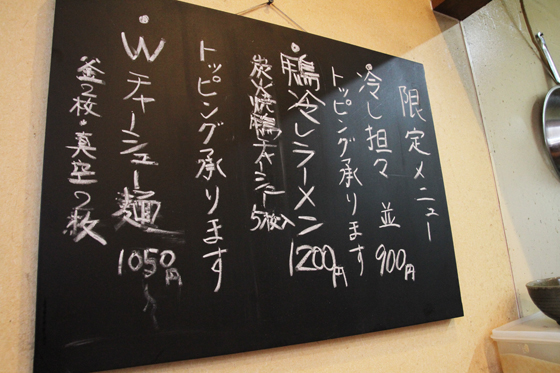 限定メニュー
冷し担々 並 900円
トッピング承ります
鴨冷しラーメン 1200円
炭火焼鴨チャーシュー5枚入
トッピング承ります
Wチャーシュー麺 1050円
釜2枚・真空2枚